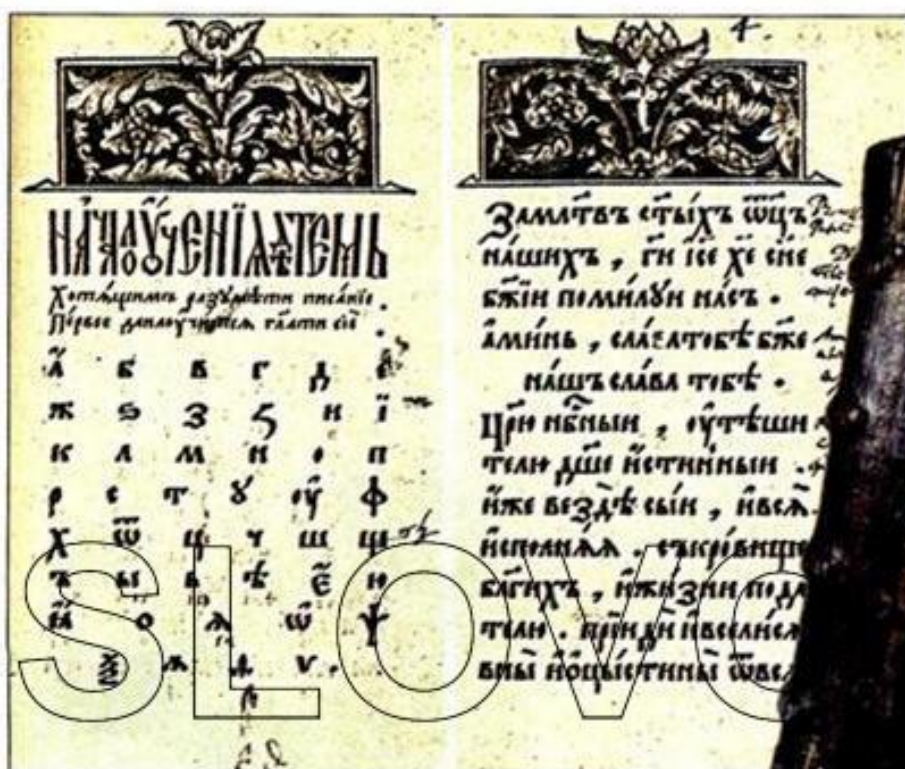 НАЧАЛО ОУ҆ЧЕНЇѦ ДѢТЕМЬ
Хотѧщимъ разꙋмѣти писанїе .
Первое
а б в г д е
ж ѕ з и ї
к л м н о п
р с т ꙋ оу ф
х ѿ ц ч ш щ
ъ ы ь ѣ ю
ꙗ о ѧ ѡ ѱ
ѯ ѧ ѵ .
4.
За мл҃твъ ст҃ыхъ ѿц҃ъ
на́шихъ , гⷭ҇и і҆с҃е хе҃ сн҃е
бж҃їи поми́лꙋи на́съ .
а҆ми́нь , сла́ва тобѣ бж҃е
на́шъ сла́ва тобѣ .
Цр҃ю нбⷭ҇ныи , оу҆тѣши
телю дш҃е и҆́стинныи .
и҆́же вездѣ сы́и , и҆ всѧ̀
и҆сполнѧѧ . съкро́вище
бл҃ги́хъ , и҆ жи́зни пода
телю . прїиди и҆ всели́сѧ
вны̀ и҆ ѡ҆цы́сти ны̀ ѿ все
SLOVO